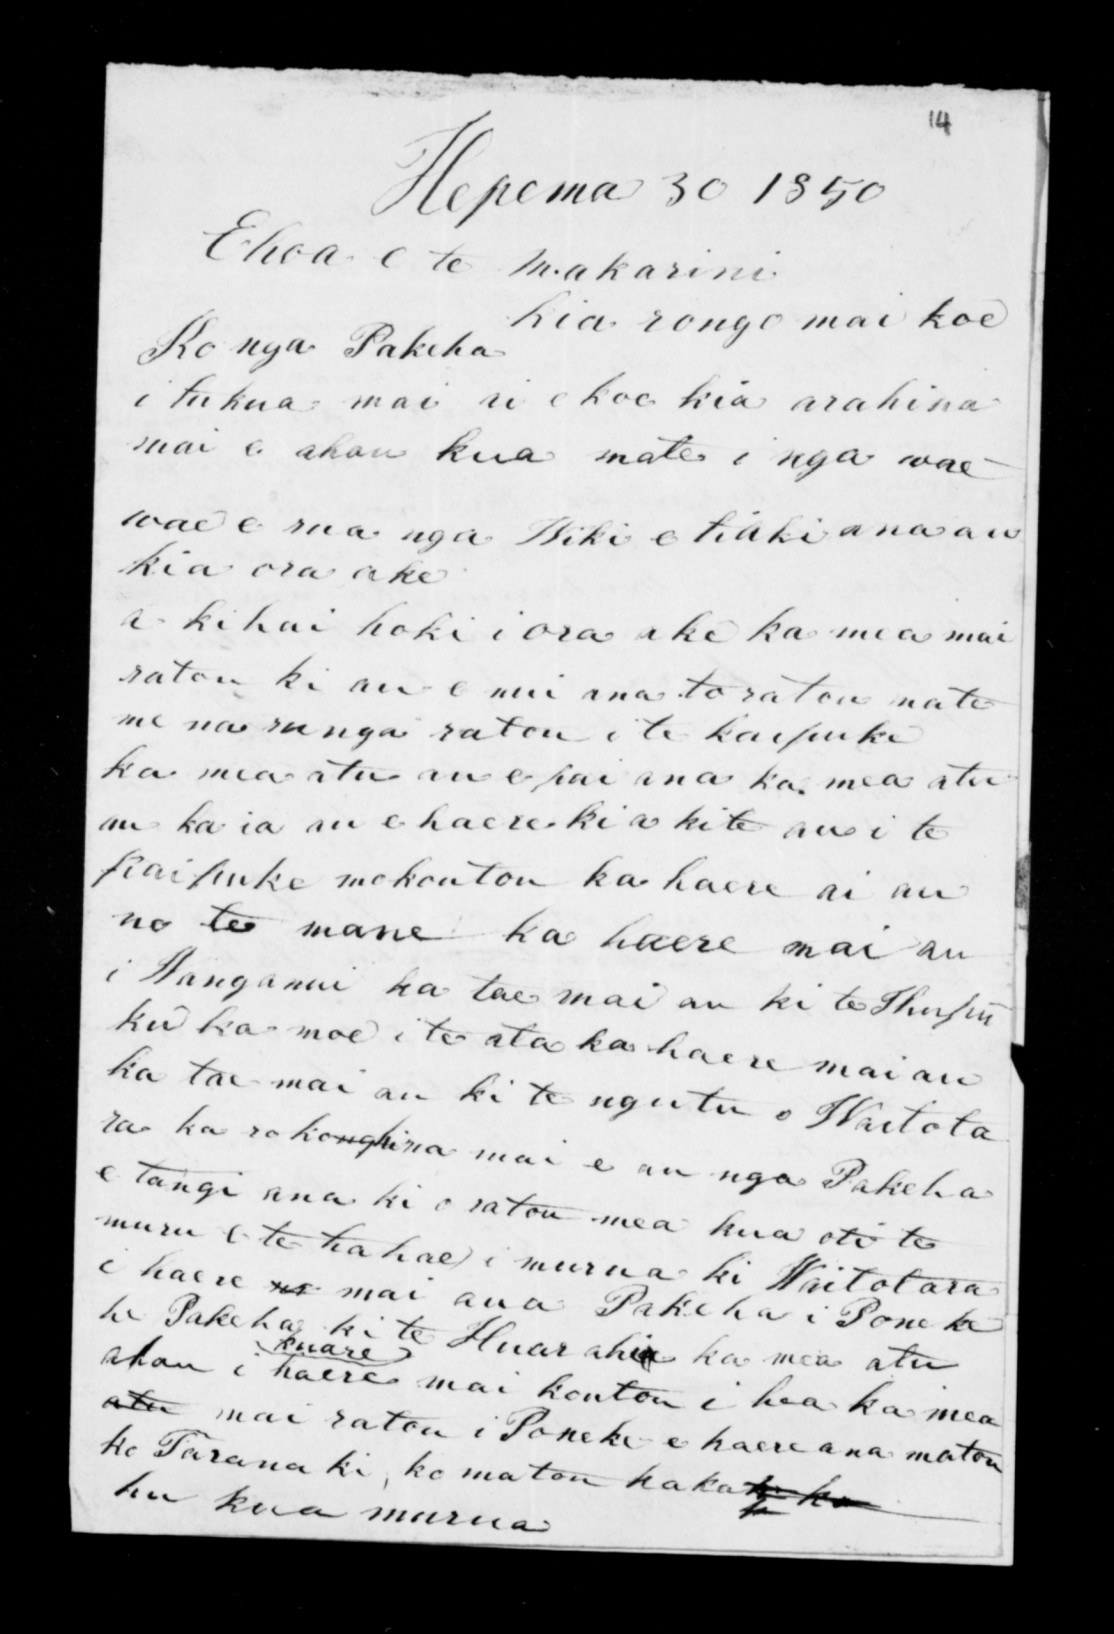 14
Hepema 30 1850
E hoa e te Makarini
kia rongo mai koe
Ko nga Pakeha
i tukua mai ai e koe kia arahina
mai e ahau kua mate i nga wae
wae e rua nga Wiki e tiaki ana au
kia ora ake
a kihai hoki i ora ake ka mea mai
ratou ki au e nui ana to ratou mate
me na runga ratou i te kaipuke
ka mea atu au e pai ana ka mea atu
au ka ia au e haere kia kite au i te
kaipuke mo koutou ka haere ai au
no te mane ka haere mai au
i Wanganui ka tae mai au ki te Ihupu
ku ka moe i te ata ka haere mai au
ka tae mai au ki te ngutu o Waitota
ra ka rokohina mai e au nga Pakeha
e tangi ana ki o ratou mea kua oti te
muru e te tahae i murua ki Waitotara
i haere mai aua Pakeha i Poneke
he Pakeha ki te Huarahi ka mea atu
kuare
ahau i haere mai koutou i hea ka mea
atu mai ratou i Poneke e haere ana matou
ko Taranaki, ko matou kaka
hu kua murua